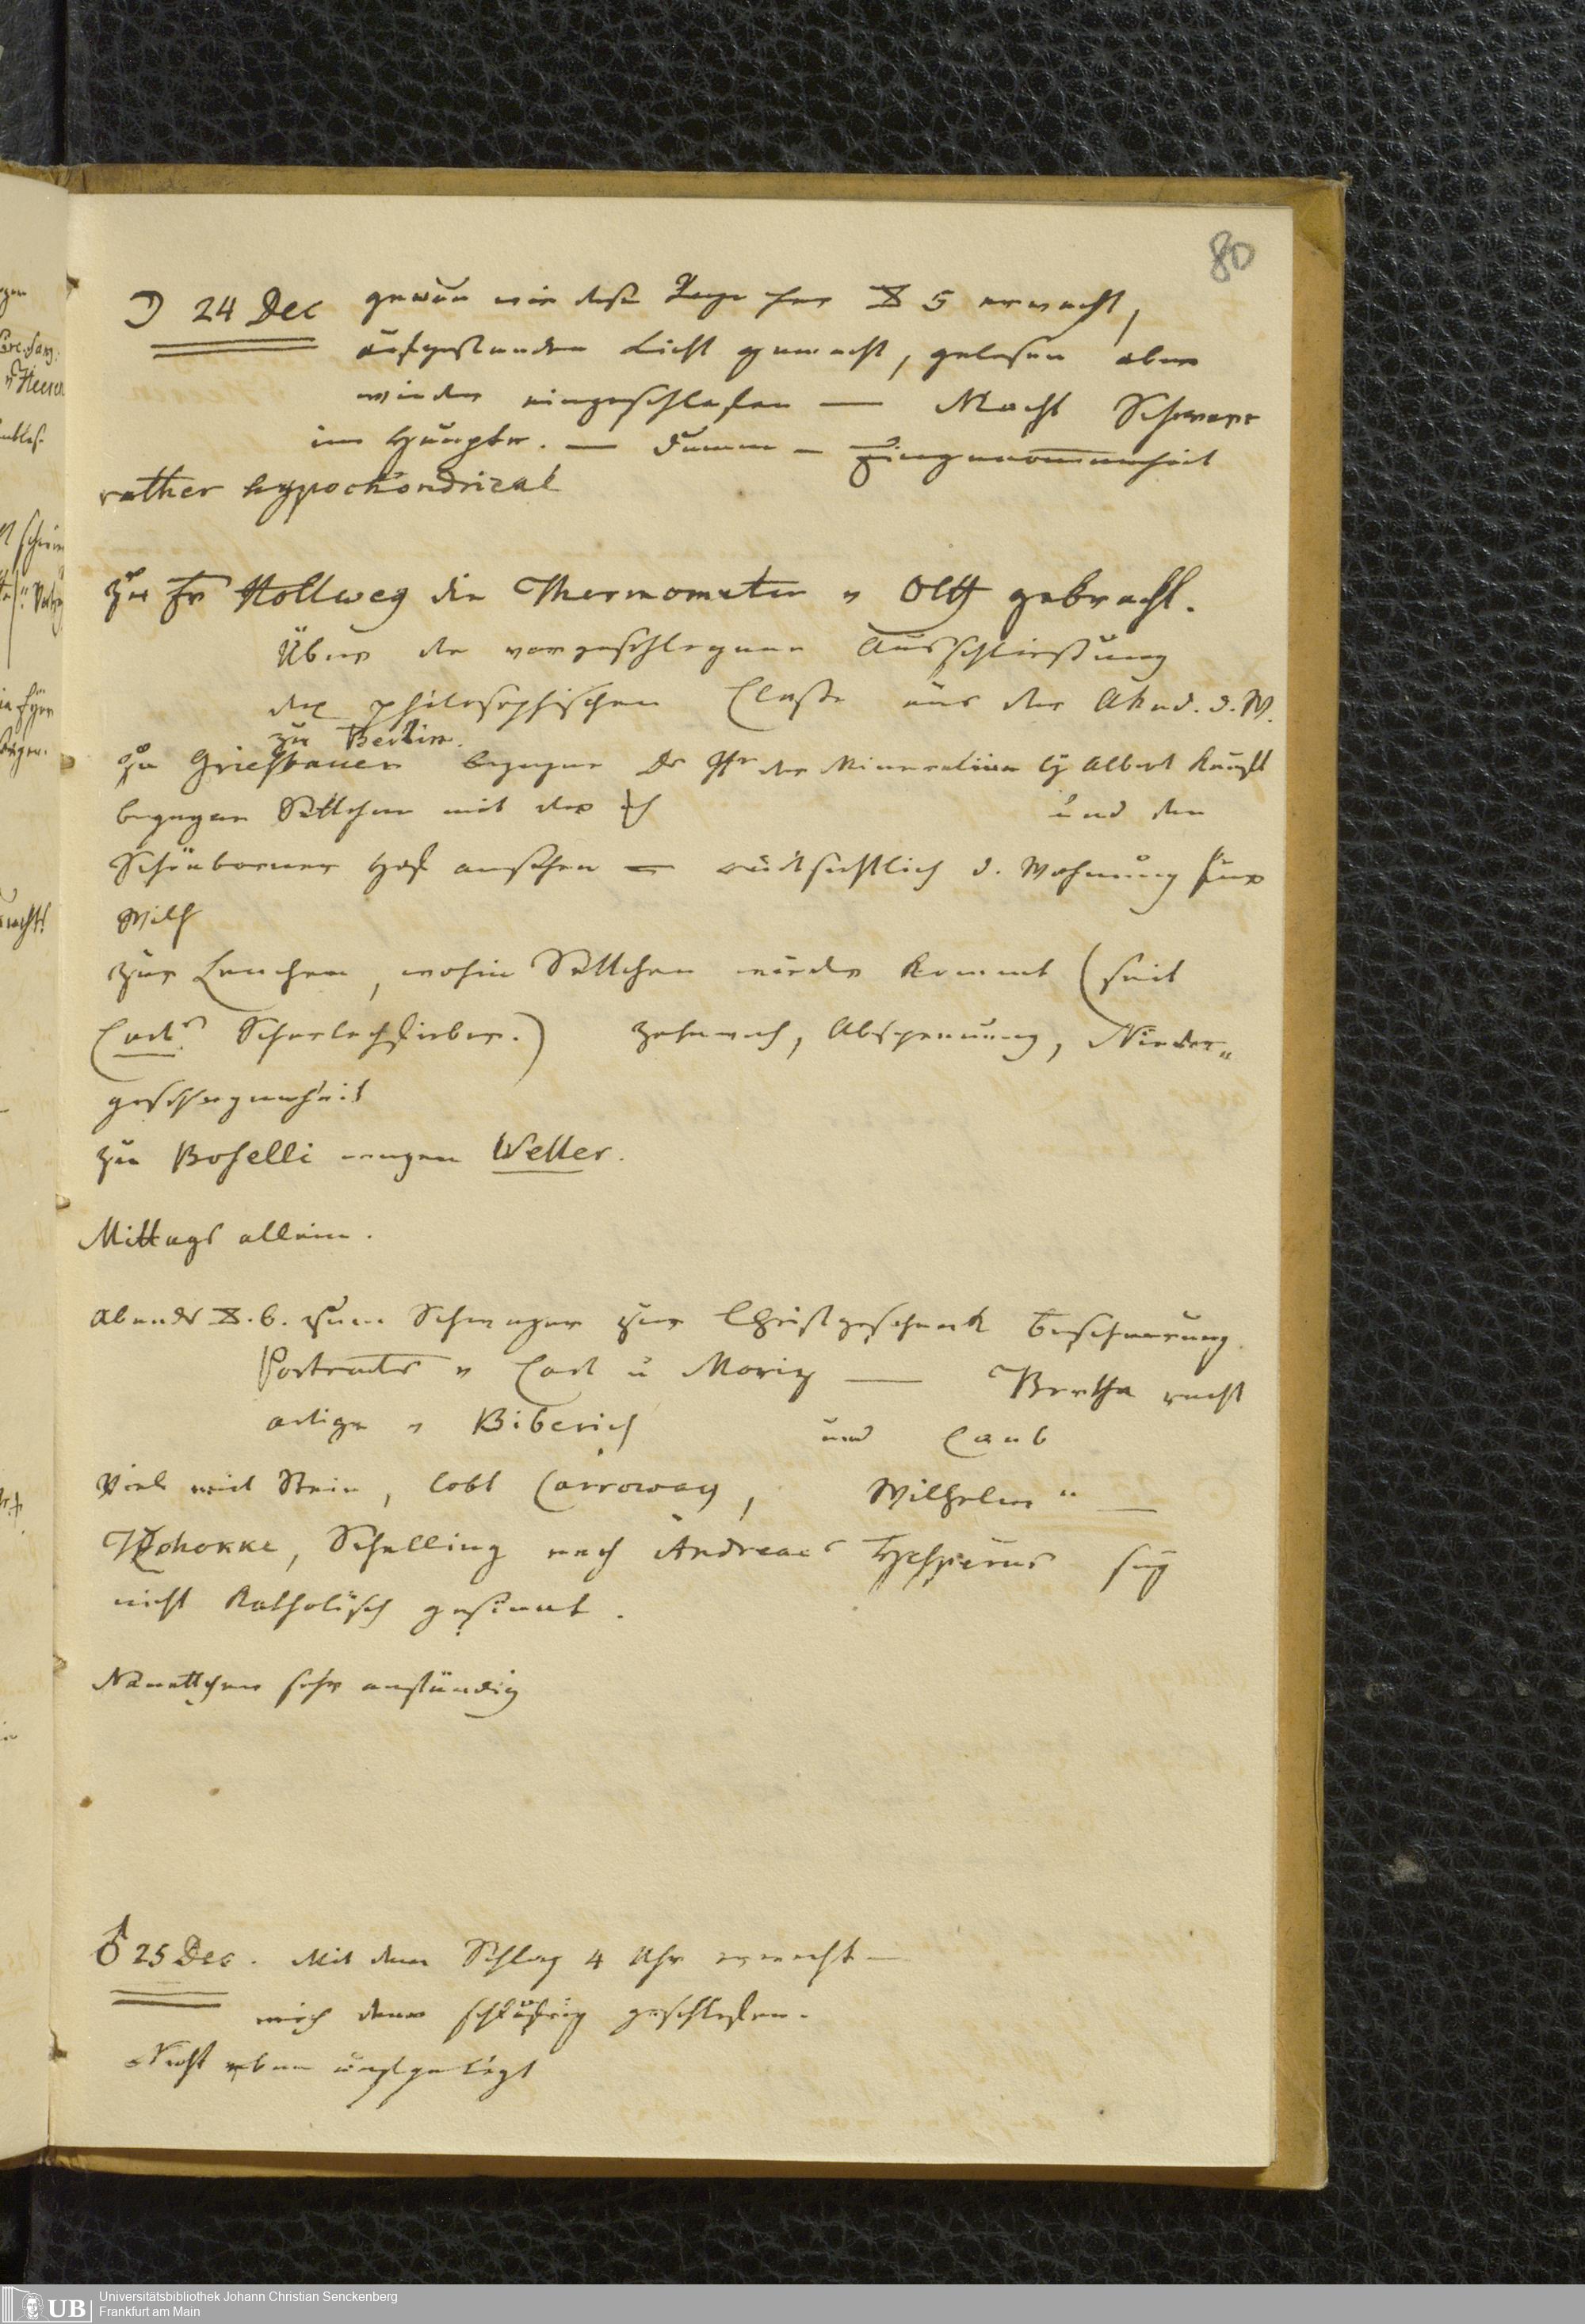 80
☽ 24 Dec genau wie diese Tage her ⧖ 5 erwacht,
aufgestanden Licht gemacht, gelesen aber
wieder eingeschlafen — Macht Schwere
im Haupte. — Dumm – Eingenommenheit
rather hypochondrical
zu Fr Hollweg die Thermometer gebracht.
Über die vorgeschlagene Ausschliessung
der philosophischen Classe aus der Akad. d. W.
zu Berlin.
zu Griesbauer begegne Dr der Albert
begegne Settchen mit der und den
Schönborner Hof ansehen — rücksichtlich d. Wohnung für
Wilh
zur Lenchen, wohin Settchen wieder kommt (seit
Carls Scharlachfieber.) Zahnweh, Abspannung, Nieder„
geschlagenheit
zu Boselli wegen Weller.
Mittags allein.
Abends ⧖. 6. zum Schwager zur Christgeschenk Bescherung
Portraits v Carl u Moriz — Bertha recht
artige v Biberich und Caub
Viel mit Stein, lobt Carroway, Wilhelm “ —
Zschokke, Schelling nach Andreaes Hesperus sey
nicht katholisch gesinnt.
Nanettchen sehr anständig
♂ 25 Dec. Mit dem Schlag 4 Uhr erwacht —
mich dann geschlafen.
Nicht eben
Universitätsbibliothek Johann Christian Senckenberg
Frankfurt am Main
UB